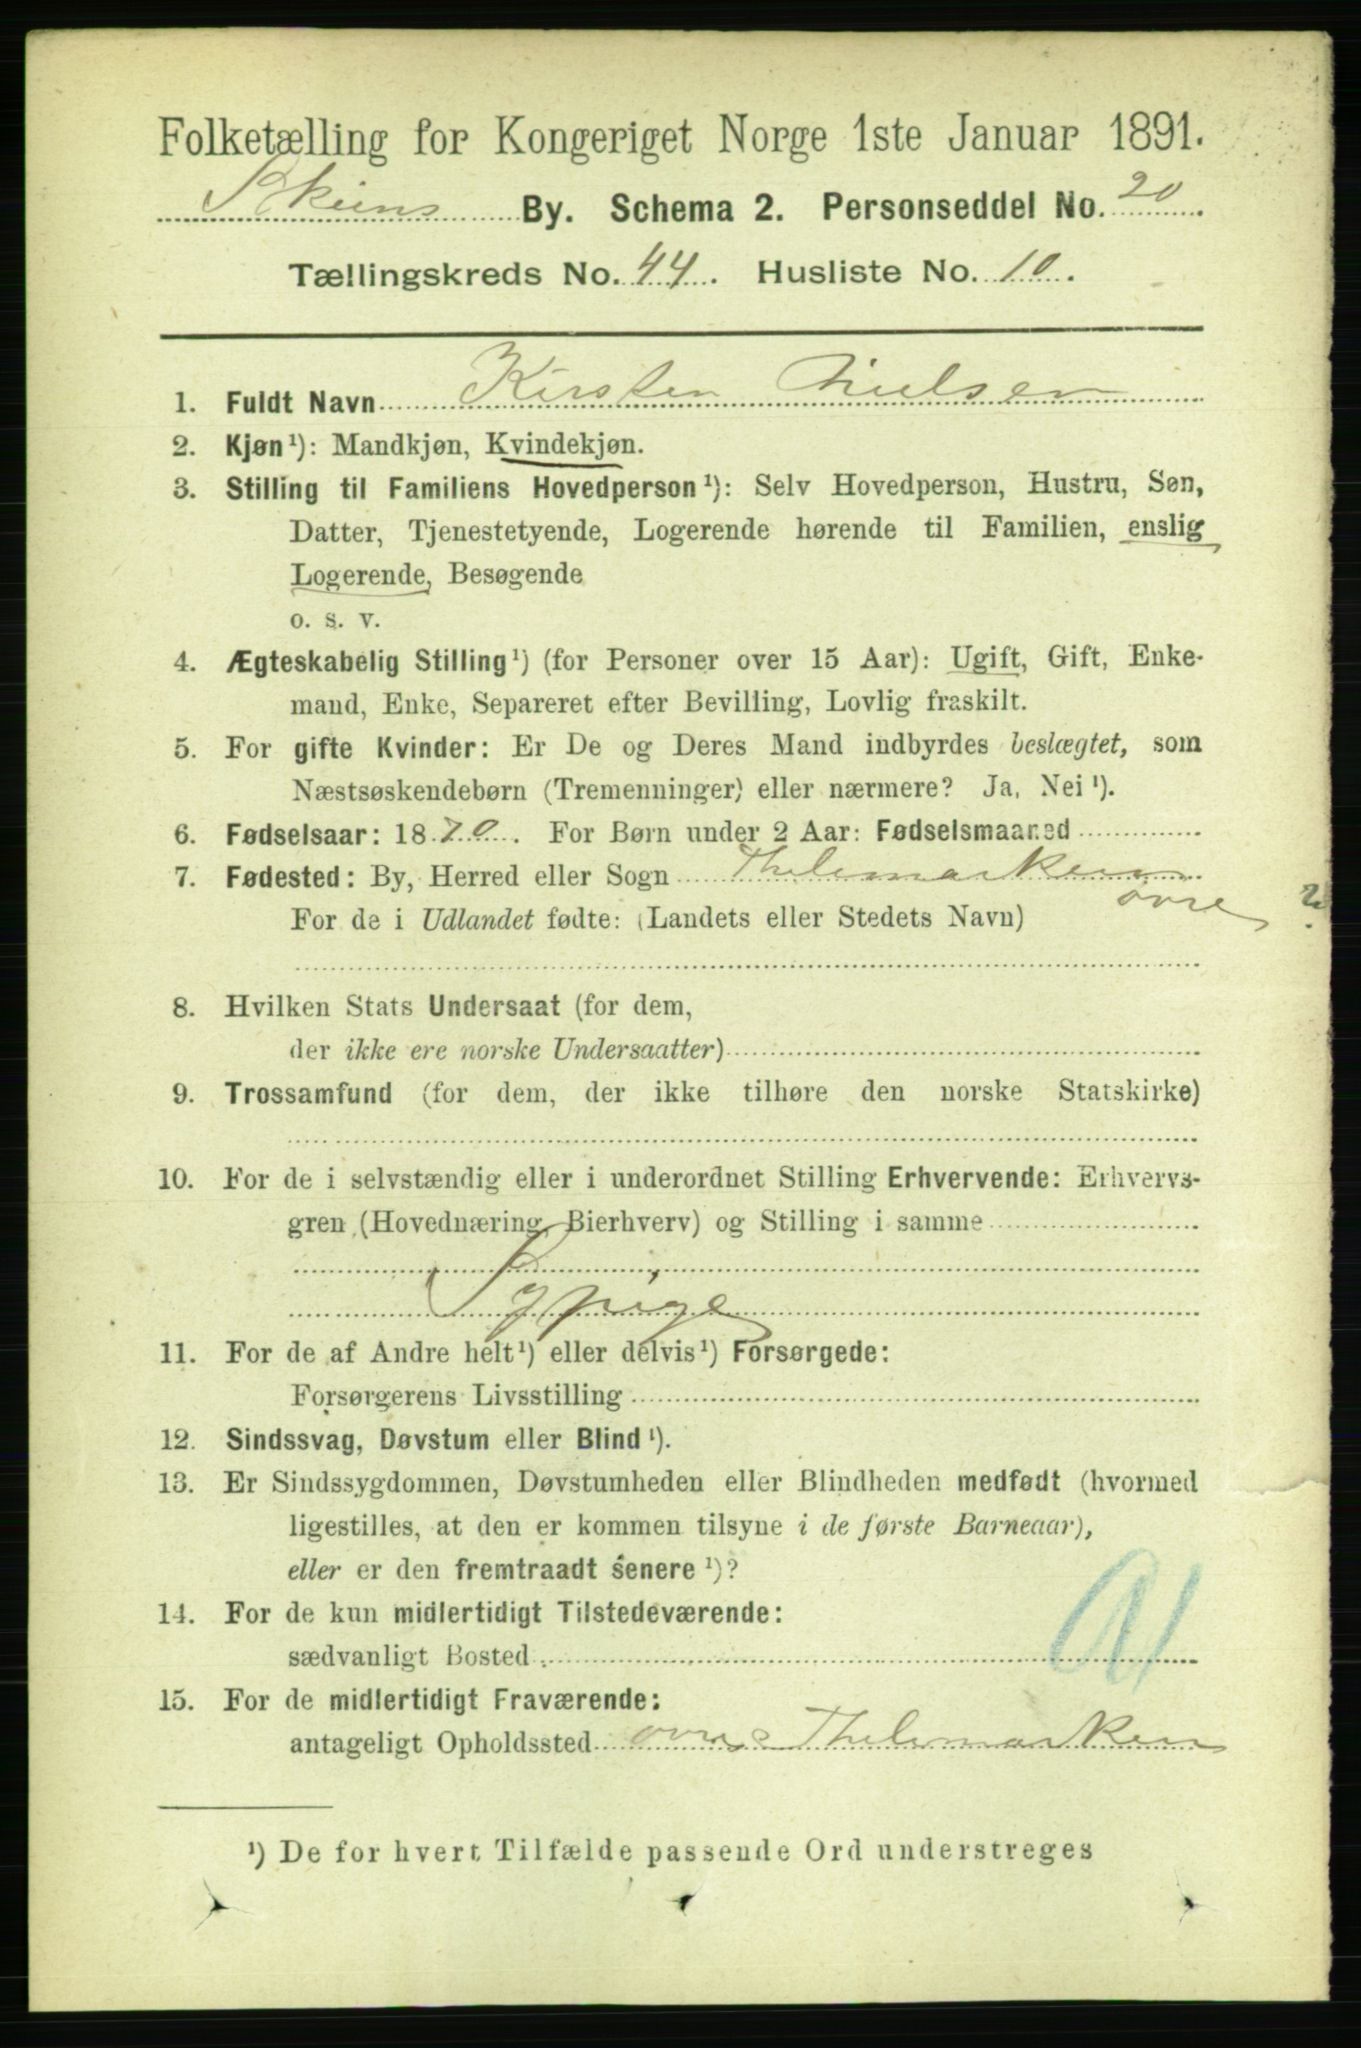 Folketælling for Kongeriget Norge 1ste Januar 1891.
Skiens By. Schema 2. Personseddel No. 20
Tællingskreds No. 44. Husliste No. 10.
1. Fuldt Navn Kirsten Nielsen
2. Kjøn¹): Mandkjøn, Kvindekjøn.
3. Stilling til Familiens Hovedperson¹): Selv Hovedperson, Hustru, Søn,
Datter, Tjenestetyende, Logerende hørende til Familien, enslig
Logerende, Besøgende
o. s. v.
4. Ægteskabelig Stilling¹) (for Personer over 15 Aar): Ugift, Gift, Enke-
mand, Enke, Separeret efter Bevilling, Lovlig fraskilt.
5. For gifte Kvinder: Er De og Deres Mand indbyrdes beslægtet, som
Næstsøskendebørn (Tremenninger) eller nærmere? Ja, Nei¹).
6. Fødselsaar: 1870. For Børn under 2 Aar: Fødselsmaaned
7. Fødested: By, Herred eller Sogn Thelemarken
øvre 2
For de i Udlandet fødte: (Landets eller Stedets Navn)
8. Hvilken Stats Undersaat (for dem,
der ikke ere norske Undersaatter)
9. Trossamfund (for dem, der ikke tilhøre den norske Statskirke)
10. For de i selvstændig eller i underordnet Stilling Erhvervende: Erhvervs-
gren (Hovednæring, Bierhverv) og Stilling i samme
Sypige
11. For de af Andre helt¹) eller delvis¹) Forsørgede:
Forsørgerens Livsstilling
12. Sindssvag, Døvstum eller Blind¹).
13. Er Sindssygdommen, Døvstumheden eller Blindheden medfødt (hvormed
ligestilles, at den er kommen tilsyne i de første Barneaar),
eller er den fremtraadt senere¹)?
14. For de kun midlertidigt Tilstedeværende:
sædvanligt Bosted
15. For de midlertidigt Fraværende:
antageligt Opholdssted øvre Thelemarken
¹) De for hvert Tilfælde passende Ord understreges